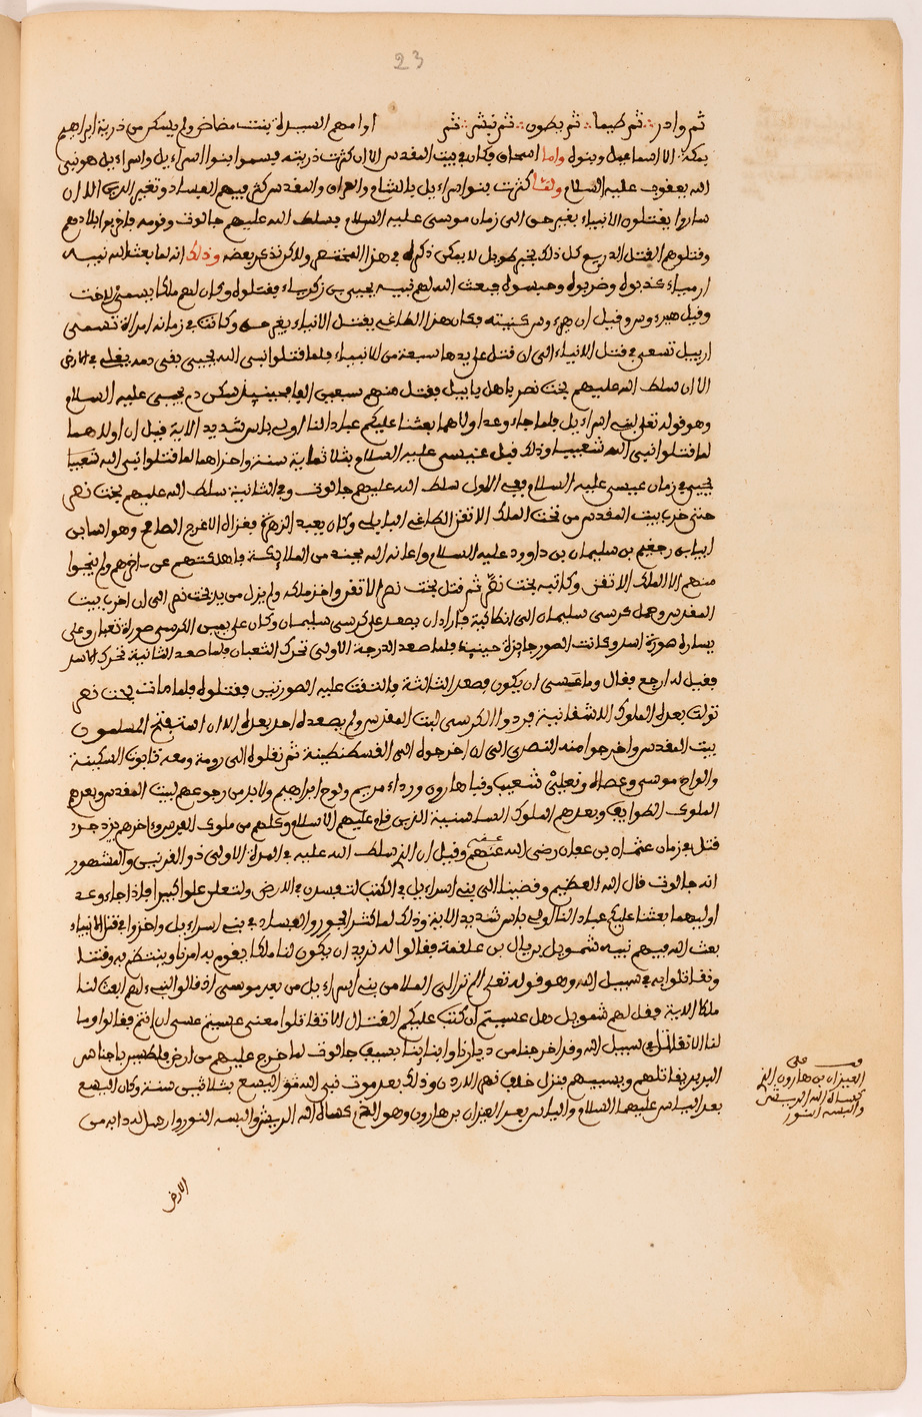 23
ثم وادر ثم طيما ثم يطور ثم نبش ثم اوامهم السيدة بنت مضاض ولم يسكن من ذرية ابراهيم
بمكة الا اسماعيل وبنوه واما اسحاق فكان في بيت المقدس الا ان كثرت ذريته فسموا بنوا اسراءيل واسراءيل هو نبي
الله يعقوب عليه السلام ولما كثرت بنوا اسراءيل بالشام والعراق والمقدس كثر فيهم الفساد وتغير الدين الا ان
ساروا يقتلون الانبياء بغير حق الى زمان موسى عليه السلام فسلط الله عليهم جالوت وقومه فاخربوا بلادهم
وقتلوهم القتل الذريع كل ذلك بخبر طويل لا يمكن ذكره في هذا المختصر ولاكن نذكر بعضه وذلك انه لما بعث الله نبيه
ارمياء كذبوه وضربوه وحبسوه فبعث الله لهم نبيه يحيى بن زكرياء فقتلوه وكان لهم ملكا يسمى لاخت
وقيل هيردوس وقيل ان هيردوس كنيته فكان هذا الطاغي يقتل الانبياء بغير حق وكانت في زمانه امراة تسمى
اربيل تسعى في قتل الانبياء الى ان قتل على يدها سبعة من الانبياء فلما قتلوا نبي الله يحيى بقي دمه يغلي في الارض
الا ان سلط الله عليهم بخت نصر باهل بابيل فقتل منهم سبعين الفا فحينيذ سكن دم يحيى عليه السلام
وهو قوله تعلى لبني اسراءيل فلما جاء وعد اولاهما بعثنا عليكم عبادا لنا اولي باس شديد الاية قيل ان اولاهما
لما قتلوا نبي الله شعيبا وذلك قبل عيسى عليه السلام بثلاثماية سنة واخراهما لما قتلوا نبي الله
يحيى في زمان عيسى عليه السلام ففي الاول سلط الله عليهم جالوت وفي الثانية سلط الله عليهم بخت نصر
حتى خرب بيت المقدس من تحت الملك الاتفز الطاغي البابلي وكان يعبد الزهرة فغزاه الاعرج الصالحي وهو اسا بن
ابيا بن رجعيم بن سليمان بن داوود عليه السلام واعانه الله بجند من الملايكة فاهلكتهم عن ءاخرهم ولم ينجوا
منهم الا الملك الاتفز وكاتبه بخت نصر ثم قتل بخت نصر الاتفز واخذ ملكه ولم يزل من يد بخت نصر الى ان اخرب بيت
المقدس وحمل كرسي سليمان الى انطاكية فاراد ان يصعد على كرسي سليمان وكان على يمين الكرسي صورة ثعبان وعلى
يساره صورة اسد وكانت الصور جايزة حينيذ فلما صعد الدرجة الاولى تحرك الثعبان فلما صعد الثانية تحرك الاسد
فقيل له ارجع فقال وما عسى ان يكون فصعد الثالثة فالتفت عليه الصورتين فقتلوه فلما مات بخت نصر
تولت بعده الملوك الاشغانية فردوا الكرسي لبيت المقدس ولم يصعده احد بعده الا ان استفتح المسلمون
بيت المقدس واخرجوا منه النصرى الى ان اخرجوه الى القسطنطينة ثم نقلوه الى رومة ومعه تابوت السكينة
والواح موسى وعصاه ونعلي شعيب وقبا هارون ورداء مريم ولوح ابراهيم ولا بد من رجوعهم لبيت المقدس وبعدهم
الملوك الطوايف وبعدهم الملوك الساسنية الذين قام عليهم الاسلام وكلهم من ملوك الفرس وءاخرهم يزدجرد
قتل في زمان عثمان بن عفان رضي الله عنهم وقيل ان الذي سلط الله عليه في المرة الاولى ذو القرنين والمشهور
انه جالوت قال الله العظيم وقضينا الى بني اسراءيل في الكتب لتفسدن في الارض ولتعلن علوا كبيرا فاذا جاء وعد
اوليهما بعثنا عليكم عبادا لنا اولي باس شديد الاية وذلك لما كثر الجور والفساد في بني اسراءيل واخذوا في قتل الانبياء
بعث الله فيهم نبيه شمويل بن يال بن علقمة فقالوا له نريد ان يكون لنا ملكا يقوم به امرنا وينتظم به وقتنا
ونقاتلوا به في سبيل الله وهو قوله تعلى الم تر الى الملا من بني اسراءيل من بعد موسى اذ قالوا لنبيء لهم ابعث لنا
ملكا الاية فقال لهم شمويل هل عسيتم ان كتب عليكم القتال الا تقاتلوا معنى عسيتم عسى ان انتم فقالوا وما
لنا الا نقاتل في سبيل الله وقد اخرجنا من ديارنا وابناينا بسبب جالوت لما خرج عليهم من ارض فلسطين باجناس
البربر يقاتلهم ويسبيهم فنزل خلف نهر الاردن وذلك بعد موت نبي الله اليسع بثلاثين سنة وكان اليسع
بعد الياس عليهما السلام والياس بعد العيزار بن هارون وهو الذي كساه الله الريش والبسه النور وارسل له دابة من
العيزار بن هارون الذي
كساه الله الريش
والبسه النور
الارض